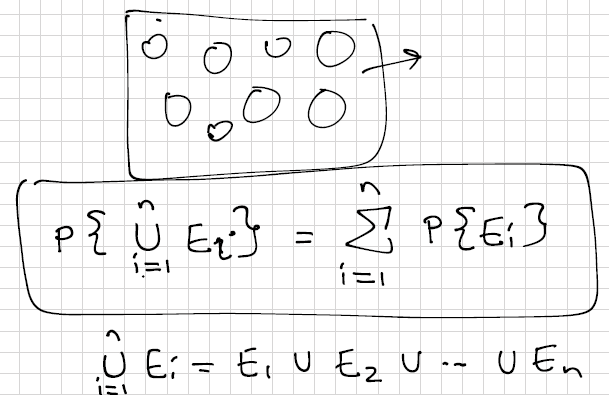 P{ ⋃_{i=1}^{n} E_i } = ∑_{i=1}^{n} P{E_i}
⋃_{i=1}^{n} E_i = E_1 ∪ E_2 ∪ ... ∪ E_n